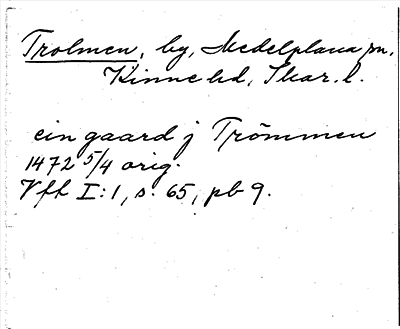 Trolmen, by, Medelplana sn,
Kinne hd, Skar. l.
ein gaard j Trömmen
1472 5/4 orig.
Vfh I:1, s. 65, pb 9.